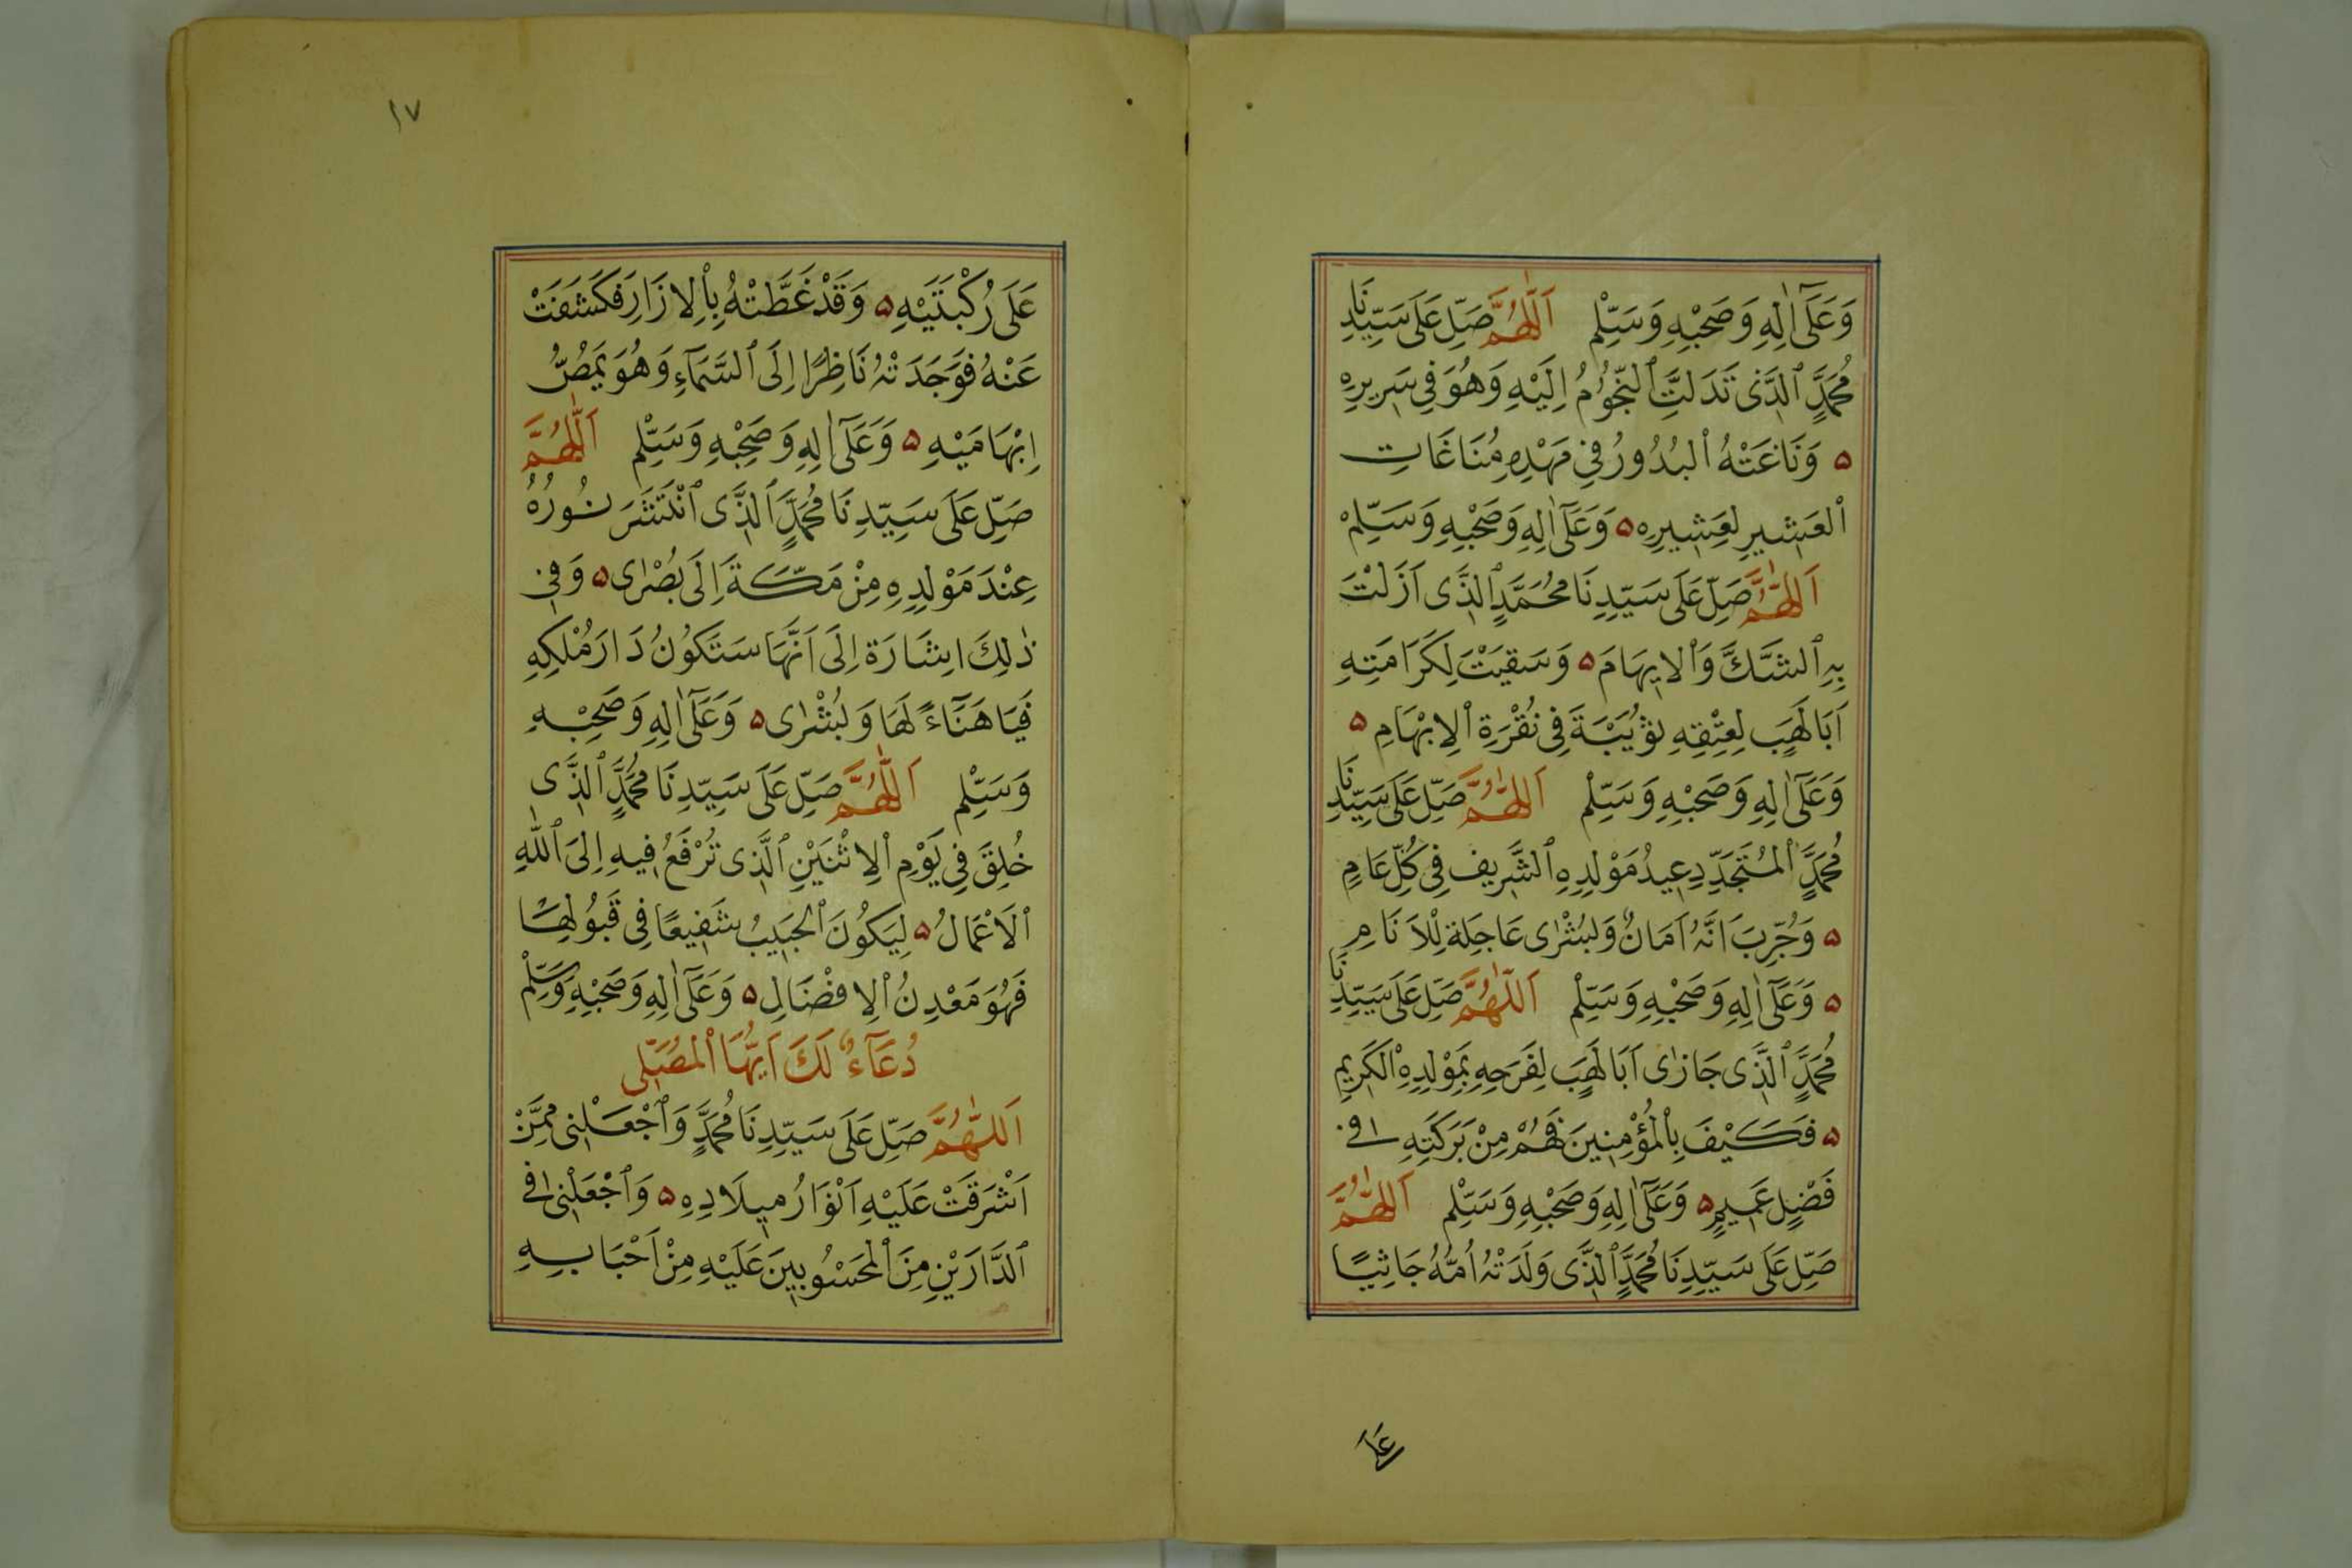 وَعَلَىٰٓ اٰلِهِ وَصَحْبِهِ وَسَلِّمْ اَللّٰهُمَّ صَلِّ عَلَى سَيِّدِنَا
مُحَمَّدٍ ٱلَّذِى تَدَلَّتِ ٱلنُّجُومُ اِلَيْهِ وَهُوَ فِى سَرِيرِهِ
۵ وَنَاغَتْهُ ٱلْبُدُورُ فِى مَهْدِهِ مُنَاغَاتِ
ٱلْعَشِيرِ لِعَشِيرِهِ ۵ وَعَلَىٰٓ اٰلِهِ وَصَحْبِهِ وَسَلِّمْ
اَللّٰهُمَّ صَلِّ عَلَى سَيِّدِنَا مُحَمَّدٍ ٱلَّذِى اَزَلْتَ
بِهِ ٱلشَّكَّ وَٱلْاِيهَامَ ۵ وَسَقَيْتَ لِكَرَامَتِهِ
اَبَا لَهَبٍ لِعِتْقِهِ ثُوَيْبَةَ فِى نُقْرَةِ ٱلْاِبْهَامِ ۵
وَعَلَىٰٓ اٰلِهِ وَصَحْبِهِ وَسَلِّمْ اَللّٰهُمَّ صَلِّ عَلَى سَيِّدِنَا
مُحَمَّدٍ ٱلْمُتَجَدِّدِ عِيدُ مَوْلِدِهِ ٱلشَّرِيفِ فِى كُلِّ عَامٍ
۵ وَجُرِّبَ اَنَّهُ اَمَانٌ وَبُشْرٰى عَاجِلَةٌ لِلْاَنَامِ
۵ وَعَلَىٰٓ اٰلِهِ وَصَحْبِهِ وَسَلِّمْ اَللّٰهُمَّ صَلِّ عَلَى سَيِّدِنَا
مُحَمَّدٍ ٱلَّذِى جَازٰى اَبَا لَهَبٍ لِفَرَحِهِ بِمَوْلِدِهِ ٱلْكَرِيمِ
۵ فَكَيْفَ بِٱلْمُؤْمِنِينَ فَهُمْ مِنْ بَرَكَتِهِ فِى
فَضْلٍ عَمِيمٍ ۵ وَعَلَىٰٓ اٰلِهِ وَصَحْبِهِ وَسَلِّمْ اَللّٰهُمَّ
صَلِّ عَلَى سَيِّدِنَا مُحَمَّدٍ ٱلَّذِى وَلَدَتْهُ اُمُّهُ جَاثِيًا
عَلَى
١٧
عَلَى رُكْبَتَيْهِ ۵ وَقَدْ غَطَّتْهُ بِٱلْاِزَارِ فَكَشَفَتْ
عَنْهُ فَوَجَدَتْهُ نَاظِرًا اِلَى ٱلسَّمَآءِ وَهُوَ يَمُصُّ
اِبْهَامَيْهِ ۵ وَعَلَىٰٓ اٰلِهِ وَصَحْبِهِ وَسَلِّمْ اَللّٰهُمَّ
صَلِّ عَلَى سَيِّدِنَا مُحَمَّدٍ ٱلَّذِى ٱنْتَشَرَ نُورُهُ
عِنْدَ مَوْلِدِهِ مِنْ مَكَّةَ اِلَى بُصْرٰى ۵ وَفِى
ذٰلِكَ اِشَارَةٌ اِلَى اَنَّهَا سَتَكُونُ دَارَ مُلْكِهِ
فَيَا هَنَآءً لَهَا وَبُشْرٰى ۵ وَعَلَىٰٓ اٰلِهِ وَصَحْبِهِ
وَسَلِّمْ اَللّٰهُمَّ صَلِّ عَلَى سَيِّدِنَا مُحَمَّدٍ ٱلَّذِى
خُلِقَ فِى يَوْمِ ٱلْاِثْنَيْنِ ٱلَّذِى تُرْفَعُ فِيهِ اِلَى ٱللّٰهِ
ٱلْاَعْمَالُ ۵ لِيَكُونَ ٱلْحَبِيبُ شَفِيعًا فِى قَبُولِهَا
فَهُوَ مَعْدِنُ ٱلْاِفْضَالِ ۵ وَعَلَىٰٓ اٰلِهِ وَصَحْبِهِ وَسَلِّمْ
دُعَآءٌ لَكَ اَيُّهَا ٱلْمُصَلِّى
اَللّٰهُمَّ صَلِّ عَلَى سَيِّدِنَا مُحَمَّدٍ وَٱجْعَلْنِى مِمَّنْ
اَشْرَقَتْ عَلَيْهِ اَنْوَارُ مِيلَادِهِ ۵ وَٱجْعَلْنِى فِى
ٱلدَّارَيْنِ مِنَ ٱلْمَحْسُوبِينَ عَلَيْهِ مِنْ اَحْبَابِهِ